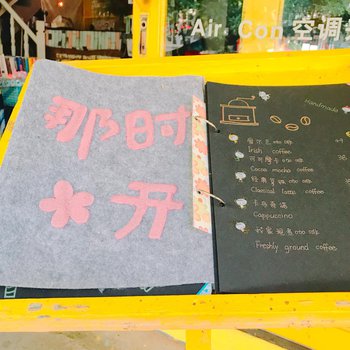 Air. Con. 空调
那时
开
Handmade
爱尔兰咖啡
Irish coffee
可可摩卡咖啡 38
Cocoa mocha coffee
经典拿铁咖啡
Classical latte coffee
卡布奇诺
Cappuccino
Freshly ground coffee